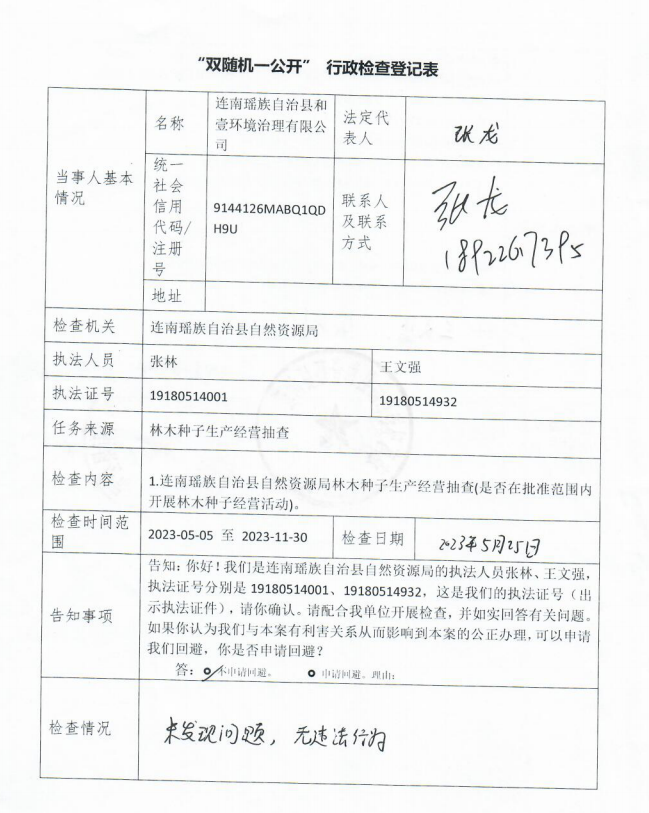 “双随机一公开” 行政检查登记表
当事人基本
情况
名称
连南瑶族自治县和
壹环境治理有限公
司
法定代
表人
张龙
统一
社会
信用
代码/
注册
号
9144126MABQ1QD
H9U
联系人
及联系
方式
张龙
18922617395
地址
检查机关
连南瑶族自治县自然资源局
执法人员
张林
王文强
执法证号
19180514001
19180514932
任务来源
林木种子生产经营抽查
检查内容
1.连南瑶族自治县自然资源局林木种子生产经营抽查(是否在批准范围内
开展林木种子经营活动)。
检查时间范
围
2023-05-05 至 2023-11-30
检查日期
2023年5月25日
告知事项
告知：你好！我们是连南瑶族自治县自然资源局的执法人员张林、王文强，
执法证号分别是 19180514001、19180514932，这是我们的执法证号（出
示执法证件），请你确认。请配合我单位开展检查，并如实回答有关问题。
如果你认为我们与本案有利害关系从而影响到本案的公正办理，可以申请
我们回避，你是否申请回避？
答： 不申请回避。 申请回避。理由：
检查情况
未发现问题，无违法行为